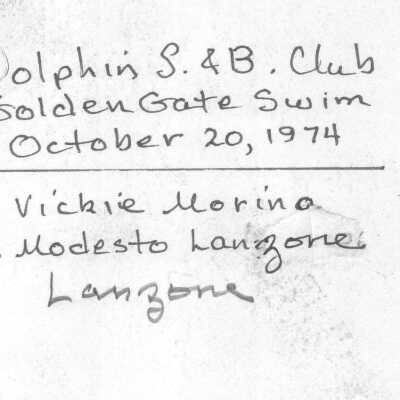 Dolphin S. & B. Club
Golden Gate Swim
October 20, 1974
Vickie Morino
Modesto Lanzone
Lanzone